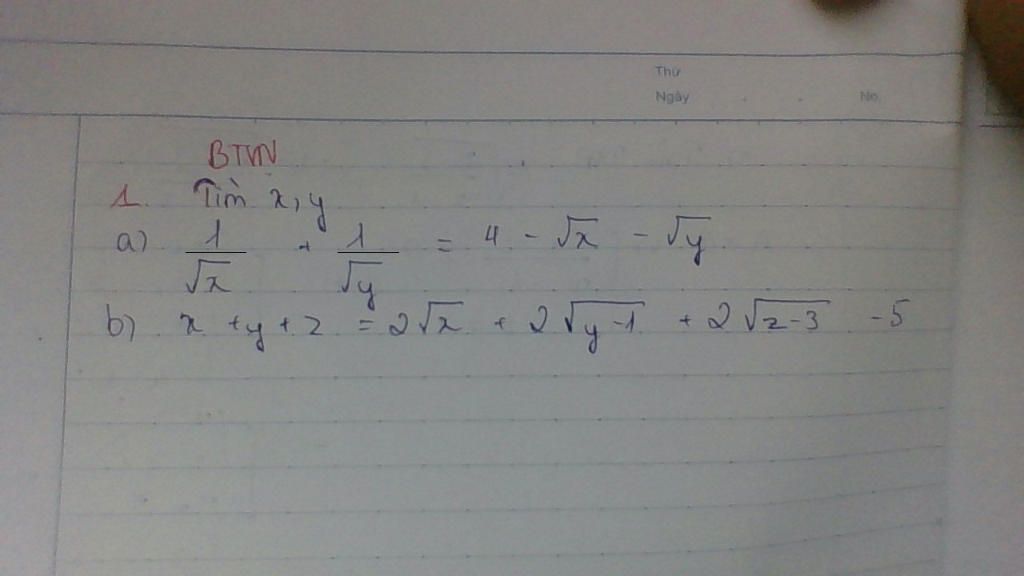 Thứ
Ngày No
BTVN
1. Tìm x, y
a) 1/√x + 1/√y = 4 - √x - √y
b) x + y + z = 2√x + 2√(y-1) + 2√(z-3) - 5